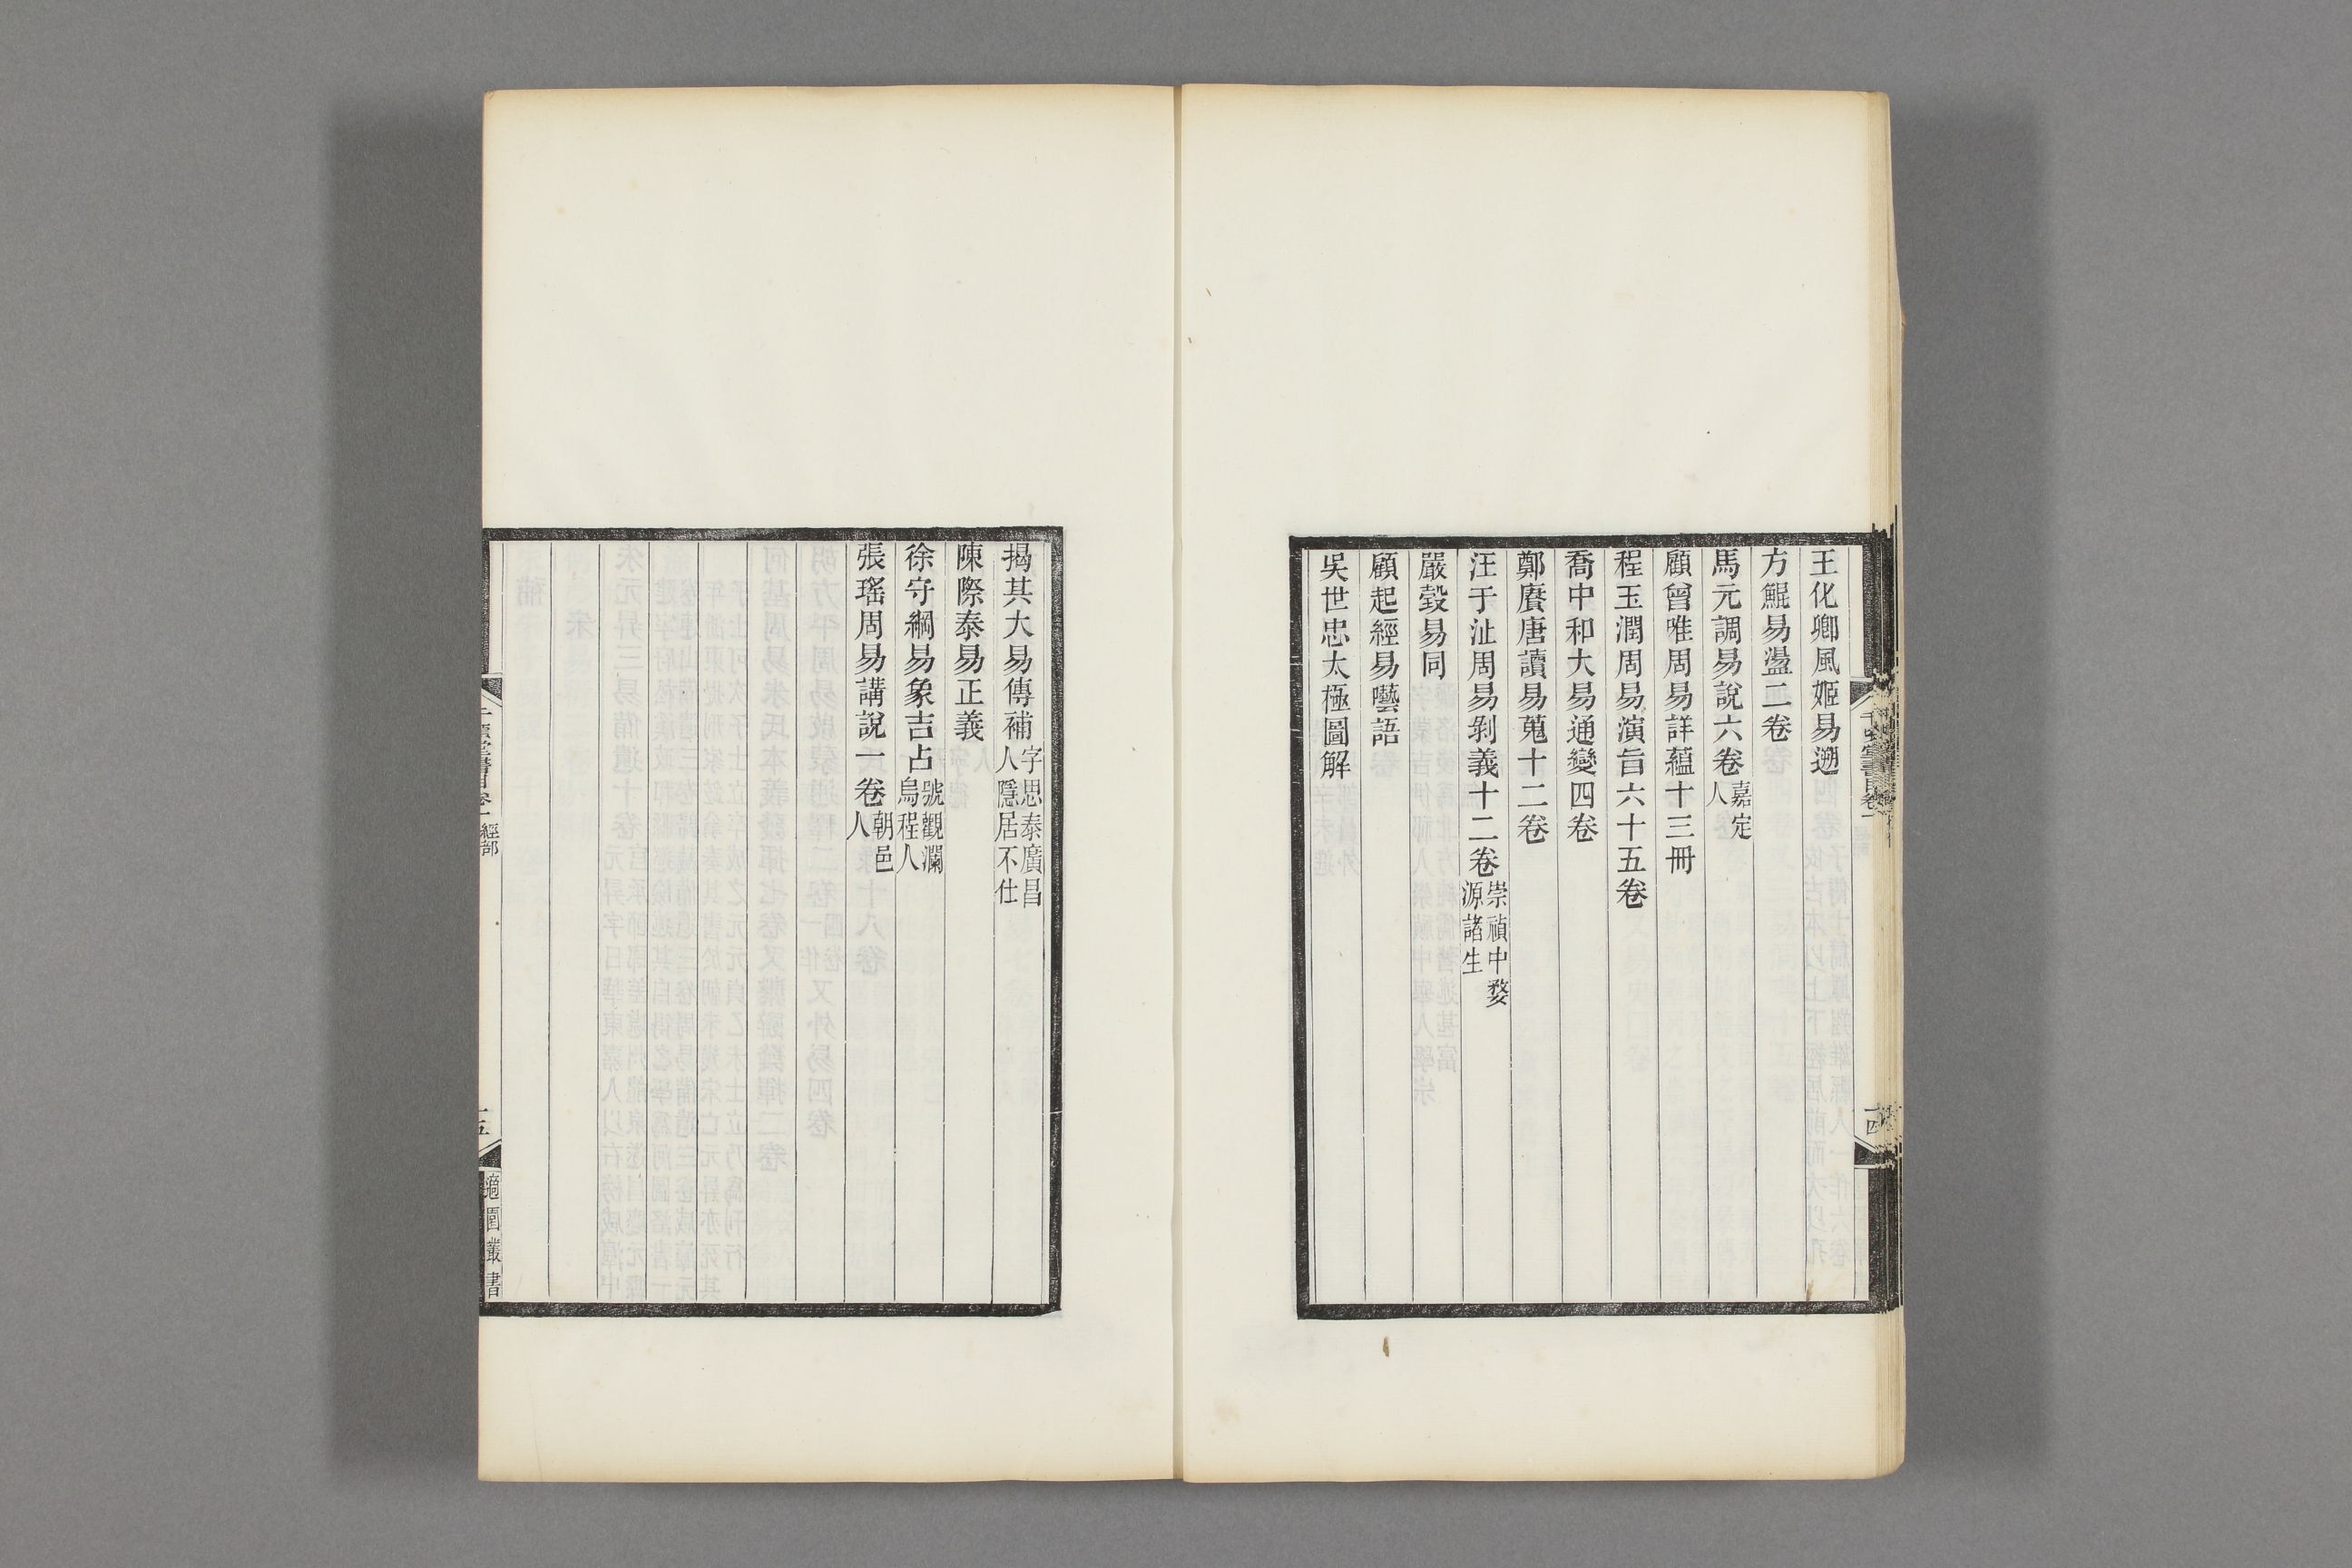 王化卿風姬易遡
方鯤易盪二卷
馬元調易說六卷嘉定人
顧曾唯周易詳蘊十三冊
程玉潤周易演旨六十五卷
喬中和大易通變四卷
鄭賡唐讀易蒐十二卷
汪于沚周易剝義十二卷崇禎中婺源諸生
嚴㲄易同
顧起經易囈語
吳世忠太極圖解
千頃堂書目卷一
十四
揭其大易傳補字思泰廣昌人隱居不仕
陳際泰易正義
徐守綱易象吉占號觀瀾烏程人
張瑤周易講說一卷朝邑人
千頃堂書目卷一 經部
十五
適園叢書